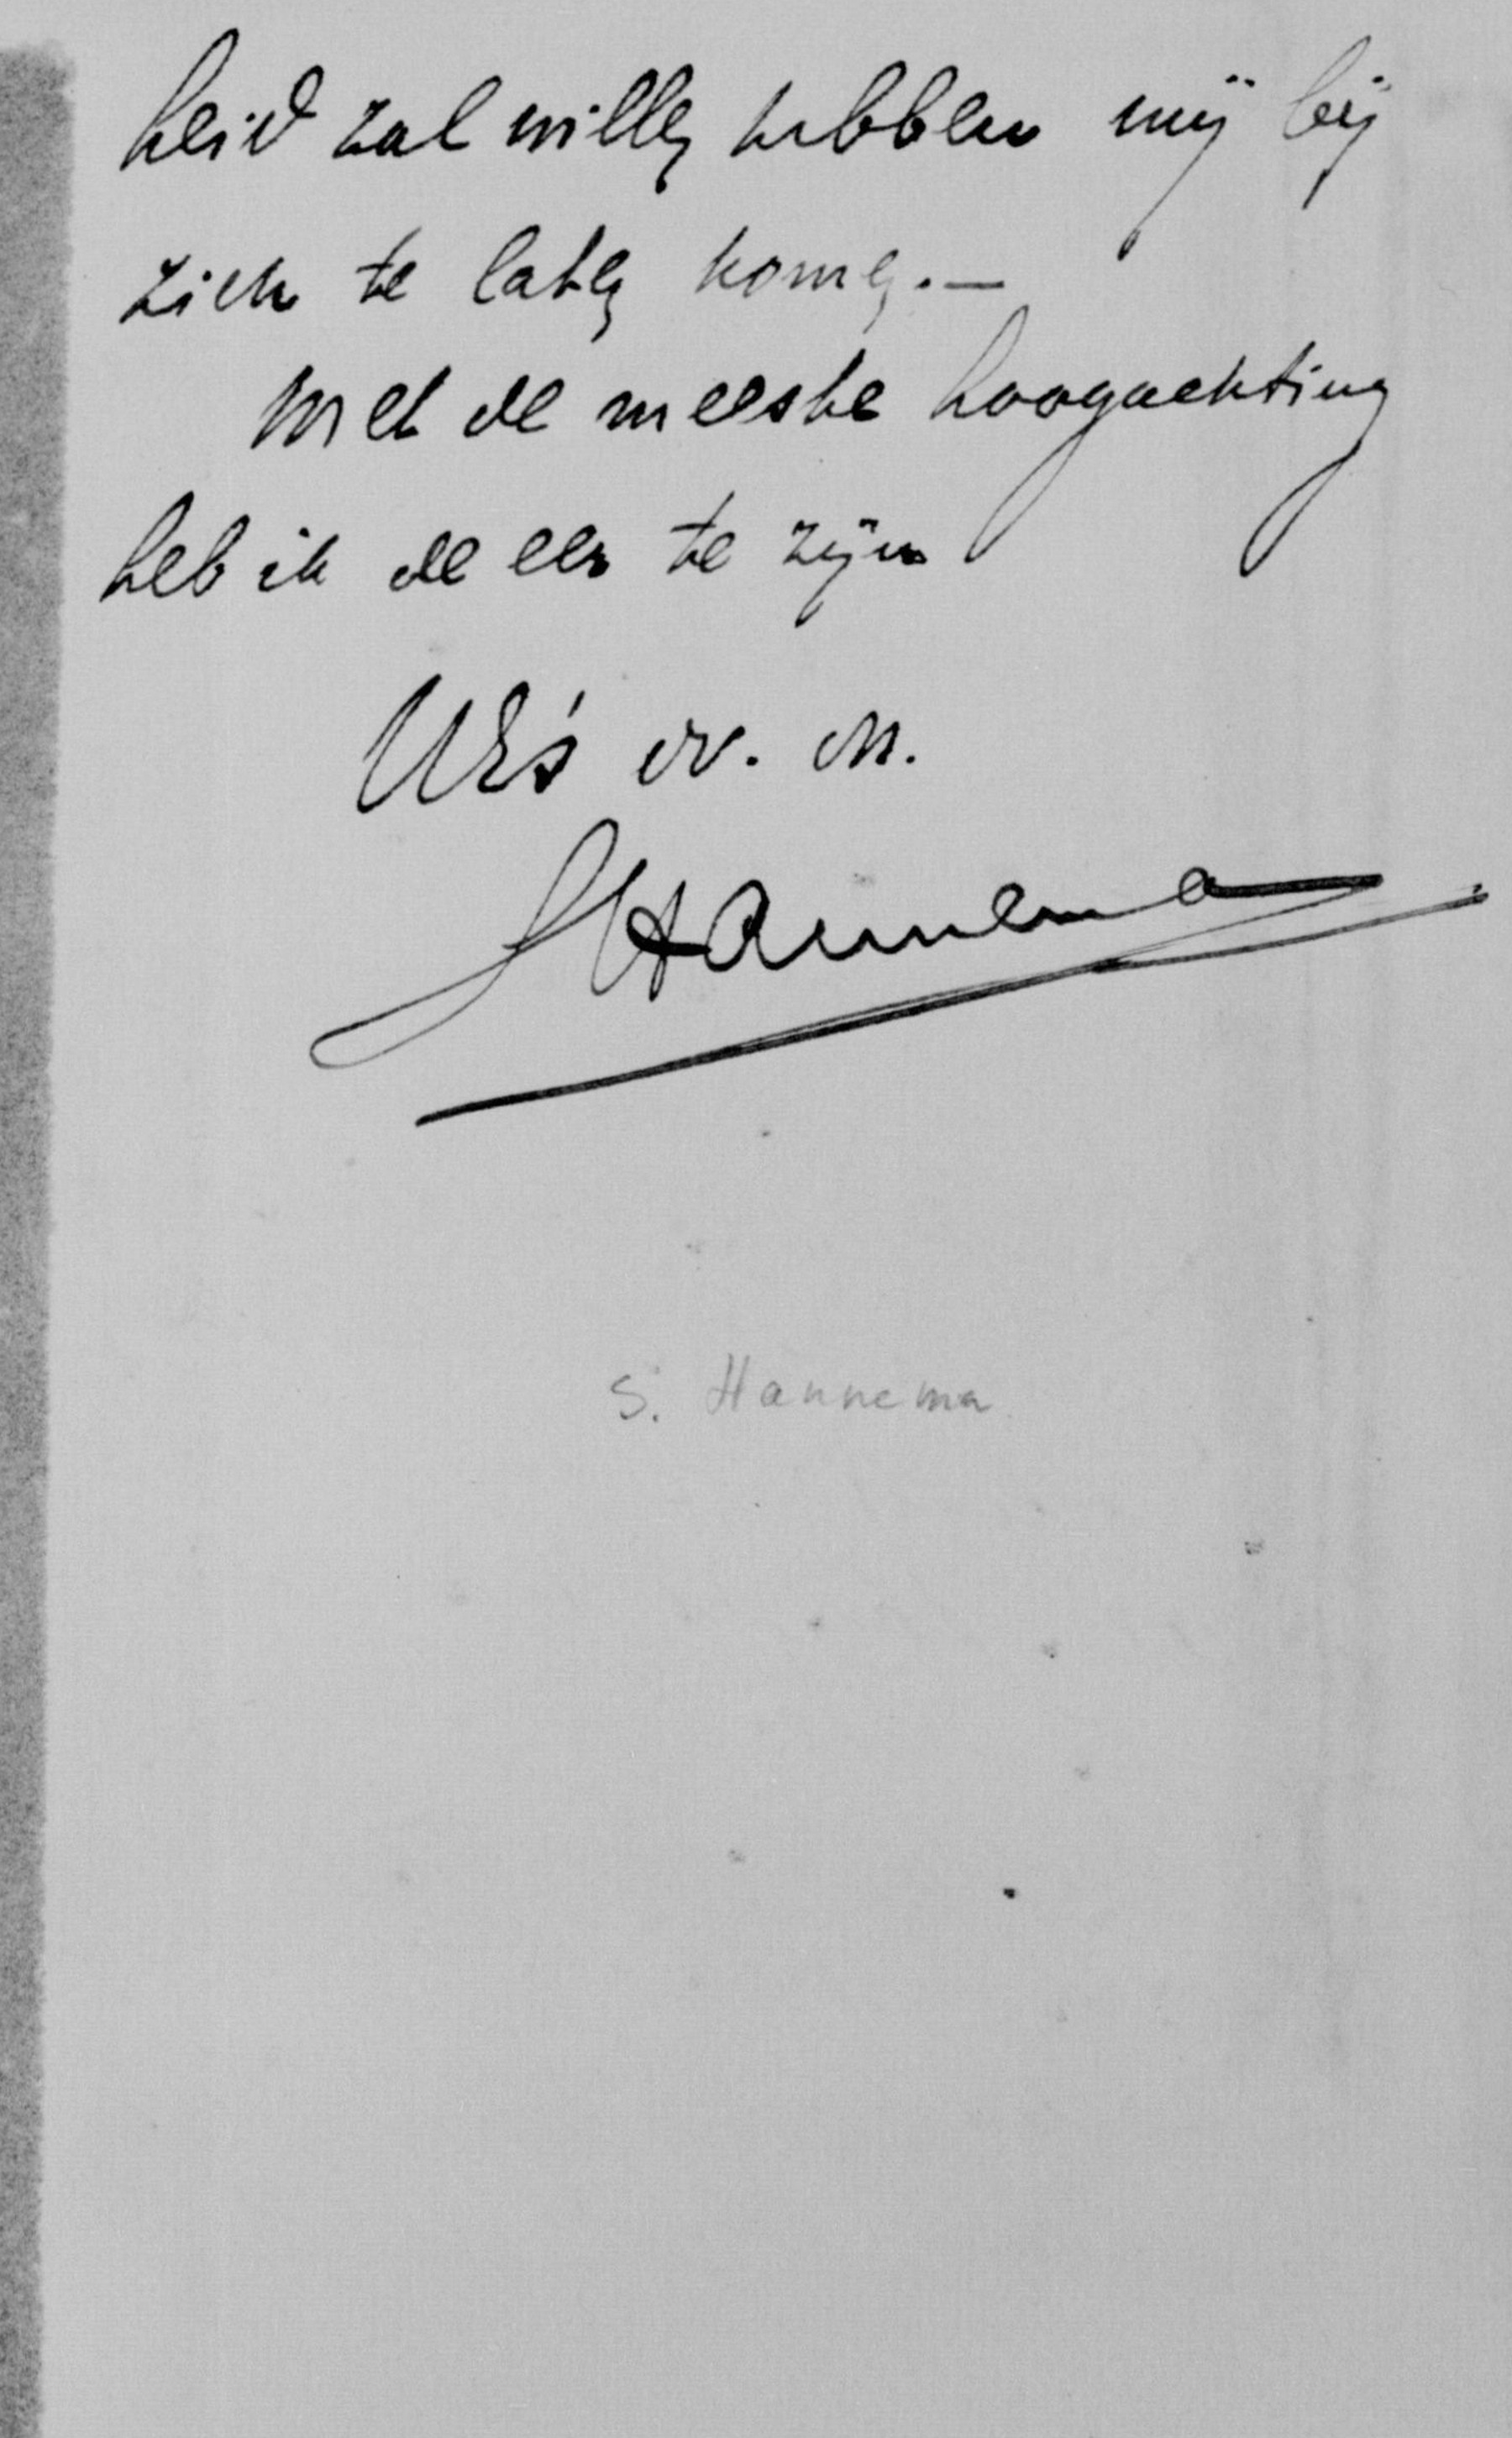 heid zal willen hebben mij bij
zich te laten komen.—
Met de meeste hoogachting
heb ik de eer te zijn
UEs dv. dn.
SHannema
S. Hannema